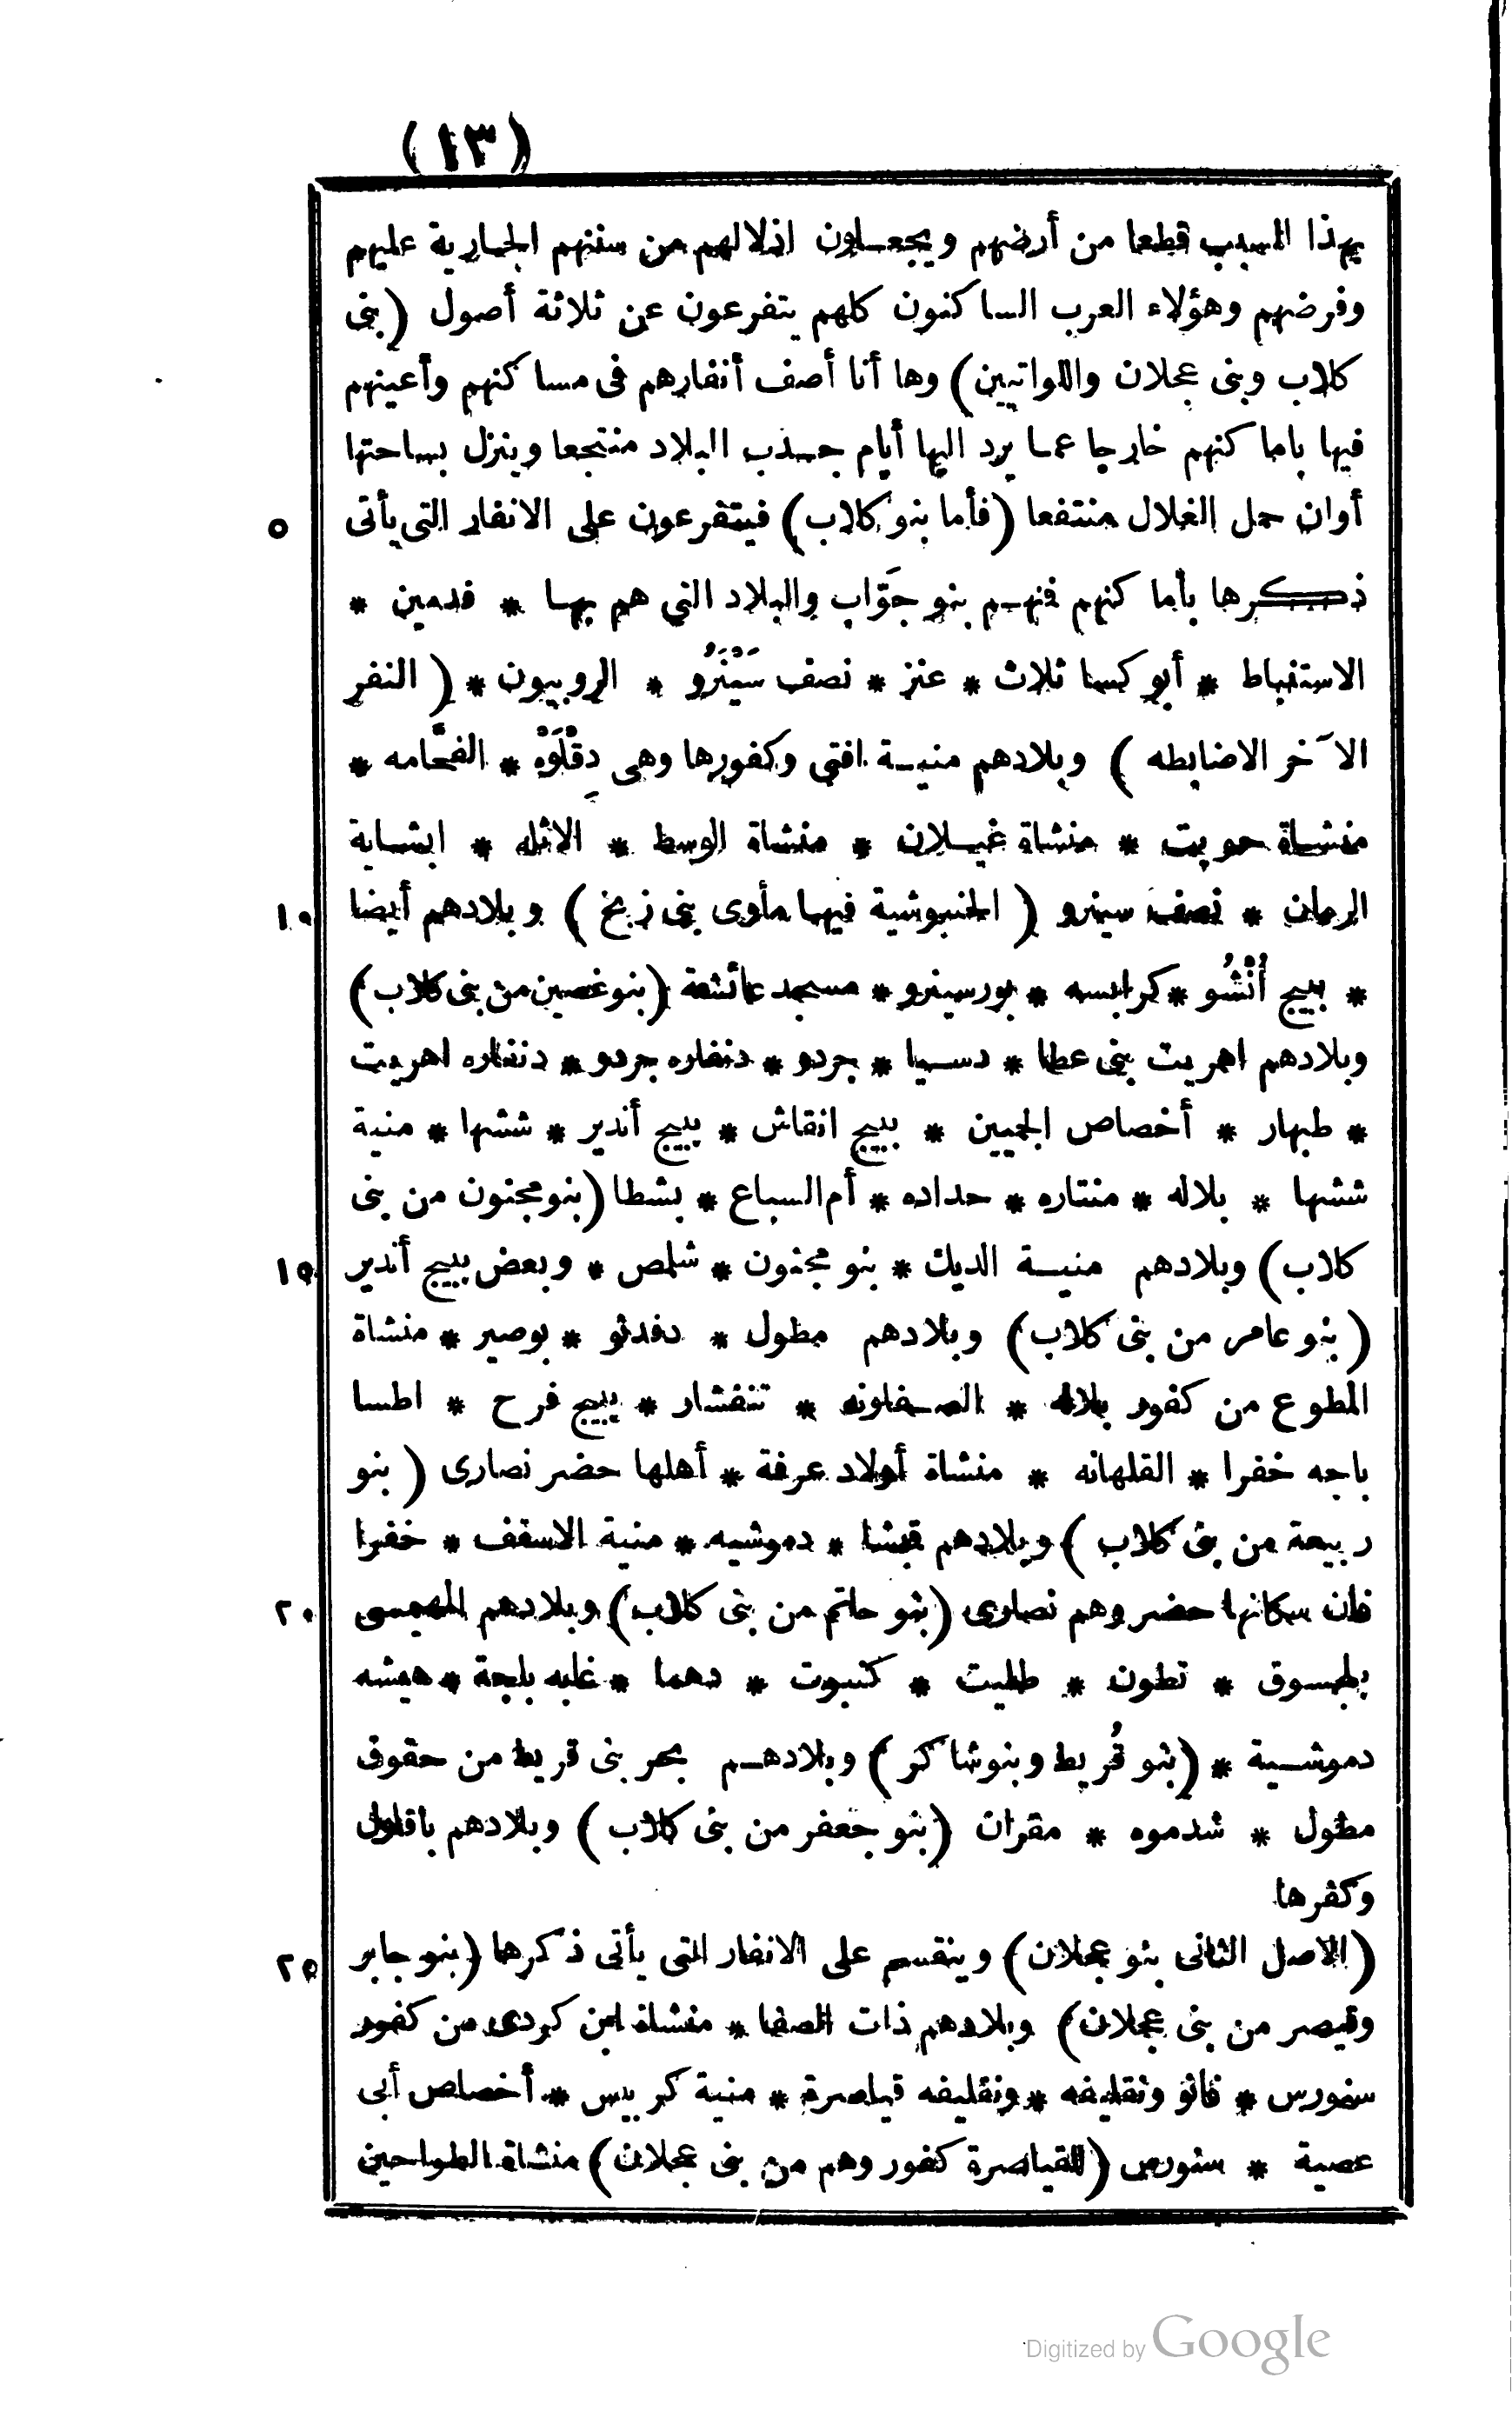 (١٣)
بهذا السبب قطعا من أرضهم ويجعلون اذلالهم من سننهم الجارية عليهم
وفرضهم وهؤلاء العرب الساكنون كلهم يتفرعون عن ثلاثة أصول (بنى
كلاب وبنى عجلان واللواتيين) وها أنا أصف أنفارهم فى مساكنهم وأعينهم
فيها باماكنهم خارجا عما يرد اليها أيام جدب البلاد منتجعا وينزل بساحتها
أوان حمل الغلال منتفعا (فأما بنو كلاب) فيتفرعون على الانفار التى يأتى
٥
ذكرها بأماكنهم فنهم بنو جَوّاب والبلاد التى هم بها * فدمين *
الاستنباط * أبو كسا ثلاث * عنز * نصف سَيْنَرُو * الروبيون * ( النفر
الآخر الاضابطه ) وبلادهم منية افتى وكفورها وهى دِقْلَوَْه * الفحّامه *
منشاة حويت * منشاة غيلان * منشاة الوسط * الاثله * ابشاية
الرمان * نصف سينرو ( الجنبوشية فيها مأوى بنى زبخ ) وبلادهم أيضا
١٠
* بييج أُنْشُو * كرابسه * بورسينرو * مسجد عائشة (بنو غصين من بنى كلاب)
وبلادهم اهريت بنى عطا * دسيا * جردو * دنفاره جردو * دنفاره اهريت
* طبهار * أخصاص الجميين * بييج انقاش * بييج أندير * ششها * منية
ششها * بلاله * منتاره * حداده * أم السباع * بشطا (بنو مجنون من بنى
كلاب) وبلادهم منية الديك * بنو مجنون * شلمص * وبعض بييج أندير
١٥
(بنو عامر من بنى كلاب) وبلادهم مطول * دفدنو * بوصير * منشاة
المطوع من كفور بلاله * الصفاونه * تنفشار * بييج فرح * اطسا
باجه خفرا * القلهانه * منشاة أولاد عرفة * أهلها حضر نصارى (بنو
ربيعة من بنى كلاب ) وبلادهم قبشا * دموشيه * منية الاسقف * خفرا
فان سكانها حضر وهم نصارى (بنو حاتم من بنى كلاب) وبلادهم المهيمسى
٢٠
بلمسوق * تطون * طليت * كنبوت * دهما * غابه باجة * هيشه
دموشية * (بنو قُريط وبنو شاكر) وبلادهم بحر بنى قريط من حقوق
مطول * شدموه * مقران (بنو جعفر من بنى كلاب ) وبلادهم باقلول
وكفرها
(الاصل الثانى بنو عجلان) وينقسم على الانفار التى يأتى ذكرها (بنو جابر
٢٥
وقيصر من بنى عجلان) وبلادهم ذات الصفا * منشاة ابن كردى من كفور
سنورس * فانو ونقليفه * ونقليفه قياصرة * منية كربيس * أخصاص أبى
عصية * سنورس (للقياصرة كفور وهم من بنى عجلان) منشاة الطواحين
Digitized by Google